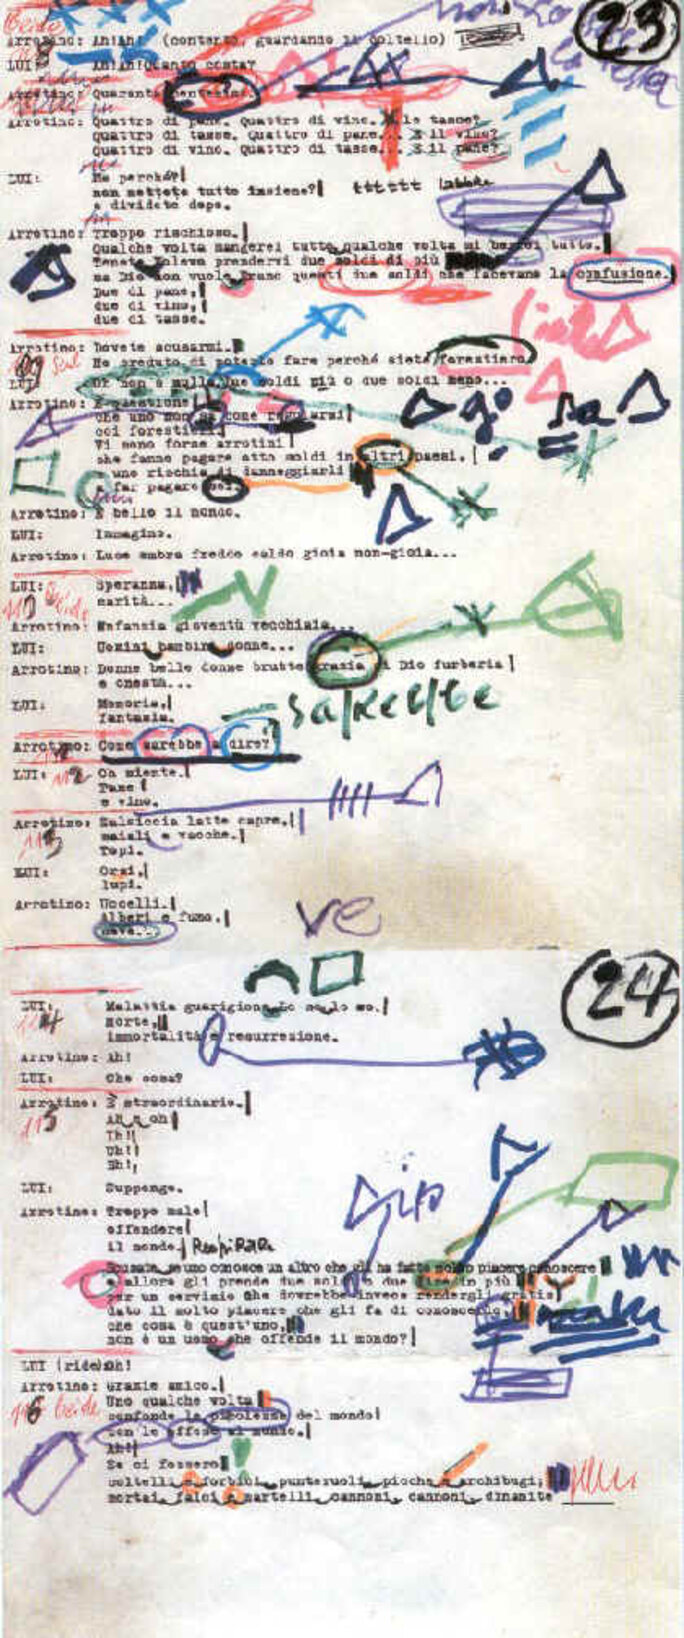 23
Arrotino: Ah!Ah! (contento, guardando il coltello)
LUI: Ah!Ah!Quanto costa?
Arrotino: Quaranta
Arrotino: Quattro di pane. Quattro di vino. E le tasse?
Quattro di tasse. Quattro di pane... E il vino?
Quattro di vino. Quattro di tasse... E il pane?
LUI: Ma perché?
non mettete tutto insieme? tttttt
e dividete dopo.
Arrotino: Troppo rischioso.
Qualche volta mangerei tutto, qualche volta mi berrei tutto.
Tenete. Volevo prendervi due soldi di più
ma Dio non vuole. Erano questi due soldi che facevano la confusione.
Due di pane,
due di vino,
due di tasse.
Arrotino: Dovete scusarmi.
Ho creduto di poterlo fare perché siete forestiero.
LUI: Oh non è nulla due soldi più o due soldi meno...
Arrotino: E questione
che uno non sa come regolarsi
coi forestieri.
Vi sono forse arrotini
che fanno pagare otto soldi in altri paesi.
uno rischia di danneggiarli
a far pagare sei.
Arrotino: E bello il mondo.
LUI: Immagino.
Arrotino: Luce ombra freddo caldo gioia non-gioia...
LUI: Speranza,
carità...
Arrotino: Infanzia gioventù vecchiaia...
LUI: Uomini bambini donne...
Arrotino: Donne belle donne brutte grazia di Dio furberia
e onestà...
LUI: Memoria,
fantasia.
Sarebbe
Arrotino: Come sarebbe a dire?
LUI: Oh niente.
Pane
e vino.
Arrotino: Salsiccia latte capre,
maiali e vacche.
Topi.
LUI: Orsi,
lupi.
Arrotino: Uccelli.
Alberi e fumo.
neve...
ve
24
LUI: Malattia guarigione. Lo so, lo so.
Morte,
immortalità e resurrezione.
Arrotino: Ah!
LUI: Che cosa?
Arrotino: E straordinario.
Ah e oh!
Ih!
Uh!
Eh!
LUI: Suppongo.
Arrotino: Troppo male
offendere
il mondo.
Scusate, se uno conosce un altro che gli ha fatto molto piacere conoscere
e allora gli prende due soldi o due lire in più
per un servizio che dovrebbe invece rendergli gratis
dato il molto piacere che gli fa di conoscerlo,
che cosa è quest'uno,
non è un uomo che offende il mondo?
LUI (ride)Oh!
Arrotino: Grazie amico.
Uno qualche volta
confonde le piccolezze del mondo
con le offese al mondo.
Ah!
Se ci fossero
coltelli e forbici, punteruoli, picche e archibugi,
mortai, falci e martelli, cannoni, cannoni, dinamite